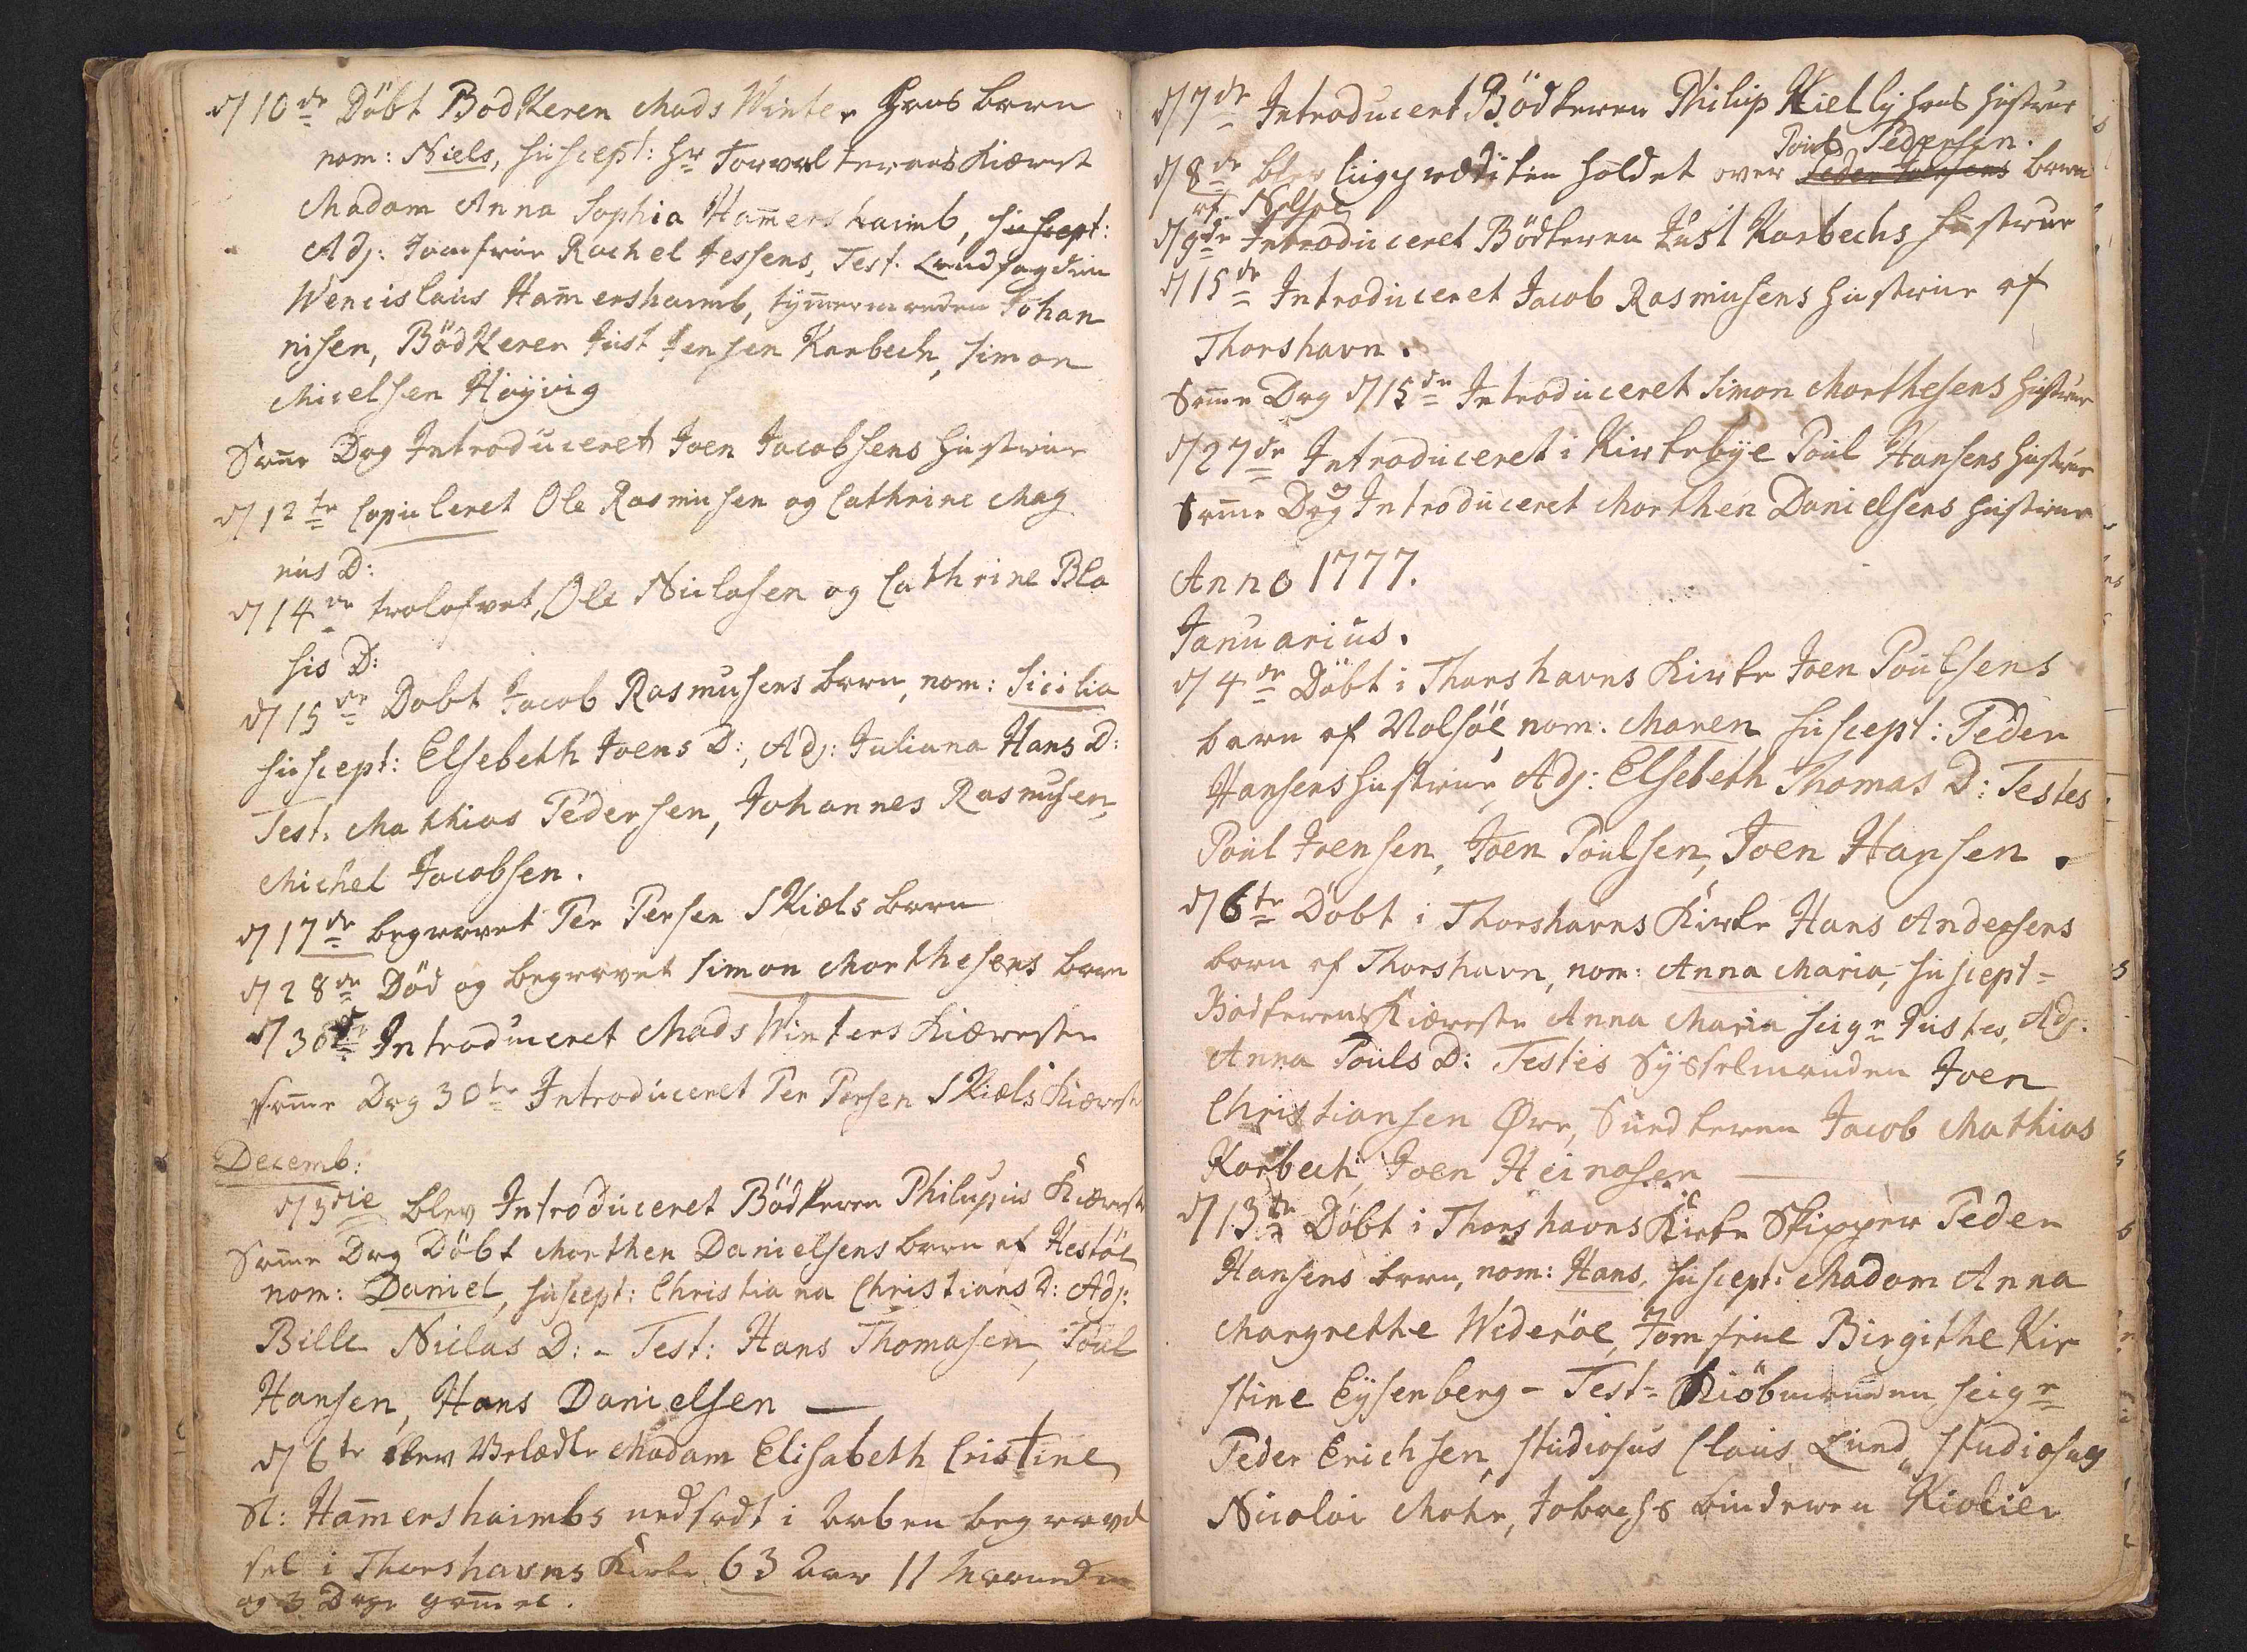 d/10de Döbt Bödkeren Mads Winter hans barn
nom: Niels, Suscept: Hr Forvalterens Kiæreste
Madam Anna Sophia Ham̄ershaimb, Suscept:
Adj: Jomfrue Rachel Jessens, Test. Landfogden
Wencislaus Ham̄ershaimb, tym̄ermanden Johan
nisen, Bödkeren Just Jensen Karbech, Simon
Micelsen Höyvig
Sam̄e Dag Introduceret Joen Jacobsens Hustrue
d/12te Copuleret Ole Rasmusen og Cathrine Mag
nus D:
d/14de trolofvet, Ole Niclasen og Cathrine Bla
sis D:
d/15de Dobt Jacob Rasmusens barn, nom: Sicilia
Suscept: Elsebeth Joens D:, Adj: Juliana Hans D:
Test: Mathias Pedersen, Johannes Rasmusen,
Michel Jacobsen.
d/17de begravet Per Persen Skiæls barn
d/28de Död og begravet Simon Morthesens barn
d/30te Introduceret Mads Winters Kiæreste
Sam̄e Dag 30te Introduceret Per Persen Skiæls Kiæreste
Decemb:
d/3die blev Introduceret Bödkeren Philupus Kiæreste
Sam̄e Dag Döbt Morthen Danielsens barn af Hestöe
nom: Daniel, Suscept: Christiana Christians D: Adj:
Bille Niclas D: - Test: Hans Thomasen, Poul
Hansen, Hans Danielsen —
d/6te blev Velædle Madam Elisabeth Cristine
Sl: Ham̄ershaimbs nedsadt i aaben begravel
sel i Thorshavns Kirke 63 Aar 11 Maaneder
og 3 Dage gam̄el.
d/7de Introducert Bödkeren Philip Kielly hans Hustrue
Pouls Pedersen.
d/8de blev liigprædiken holdet over Peder Poulsens barn
af Nolsöe
d/9de Introduceret Bödkeren Just Karbechs Hustrue
d/15de Introduceret Jacob Rasmusens Hustrue af
Thorshavn.
Sam̄e Dag d/15de Introduceret Simon Morthesens Hustrue
d/27de Introduceret i Kirkebye Poul Hansens Hustrue
Sam̄e Dag Introduceret Morthen Danielsens Hustrue
Anno 1777.
Januarius.
d/4de Döbt i Thorshavns Kirke Joen Poulsens
barn af Nolsöe nom: Maren Suscept: Peder
Hansens Hustrue, Adj: Elsebeth Thomas D: Testes
Poul Joensen, Joen Poulsen, Joen Hansen.
d/6te Döbt i Thorshavns Kirke Hans Andersens
barn af Thorshavn, nom: Anna Maria, Suscept-
Bödkerens Kiæreste Anna Maria Seigr Justes, Adj:
Anna Pouls D: Testes Sysselmanden Joen
Christiansen Øre, Snedkeren Jacob Mathias
Karbech, Joen Heinasen —
d/13de Döbt i Thorshavns Kirke Skipper Peder
Hansens barn, nom: Hans, Suscept: Madam Anna
Margrethe Wideröe, Jomfrue Birgithe Kir
stine Eysenberg - Test= Kiöbmanden Seigr
Peder Erichsen, Studiosus Claus Lund, Studiosus
Nicolai Mohr, Tobachsbinderen Kiölier